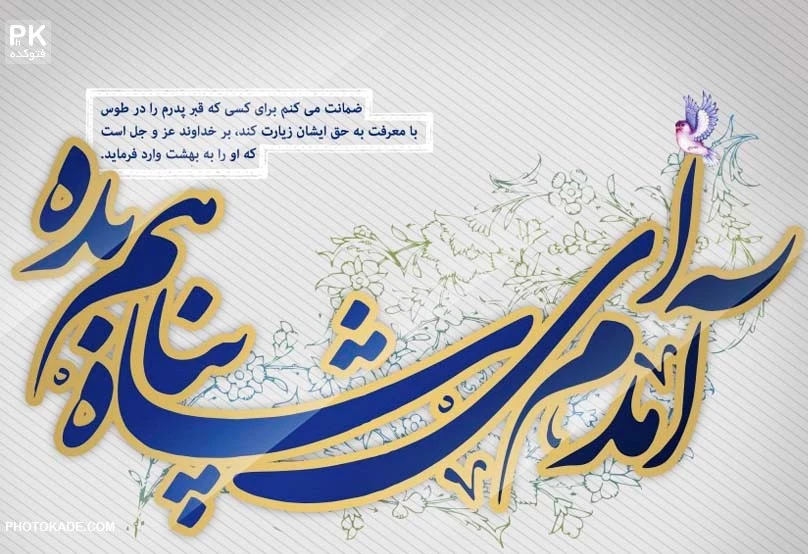 PhK
فتوکده
ضمانت می کنم برای کسی که قبر پدرم را در طوس
با معرفت به حق ایشان زیارت کند، بر خداوند عز و جل است
که او را به بهشت وارد فرماید.
آمدم ای شاه پناهم بده
PHOTOKADE.COM